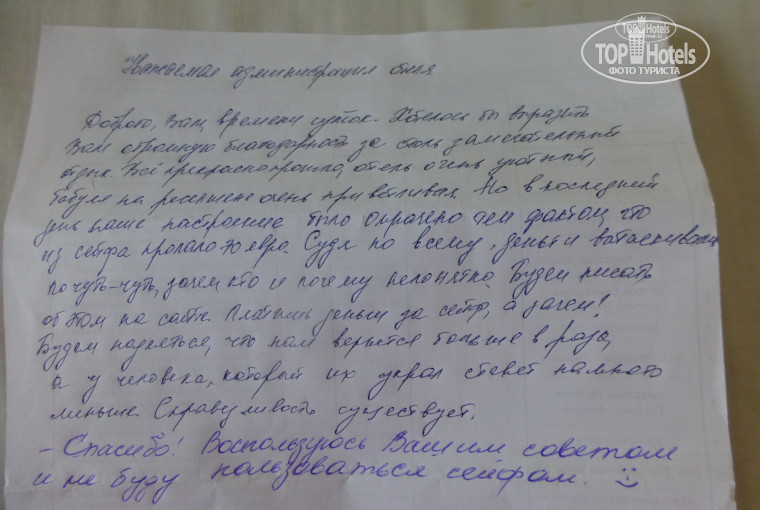 TOP Hotels
ФОТО ТУРИСТА
"Уважаемая администрация
Доброго, Вам, времени суток. Хотелось бы выразить
Вам огромную благодарность за столь замечательный
отдых. Всё прекрасно прошло, отель очень уютный,
бабуля на ресепшене очень приветливая. Но в последний
день наше настроение было омрачено тем фактом, что
из сейфа пропало 70 евро. Судя по всему, деньги вытаскивали
по чуть-чуть, зачем кто и почему непонятно. Будем писать
об этом на сайте. Платишь деньги за сейф, а зачем!
Будем надеяться, что нам вернется больше в раза,
а у человека, который их украл станет намного
меньше. Справедливость существует.
- Спасибо! Воспользуюсь Вашим советом
и не буду пользоваться сейфом.